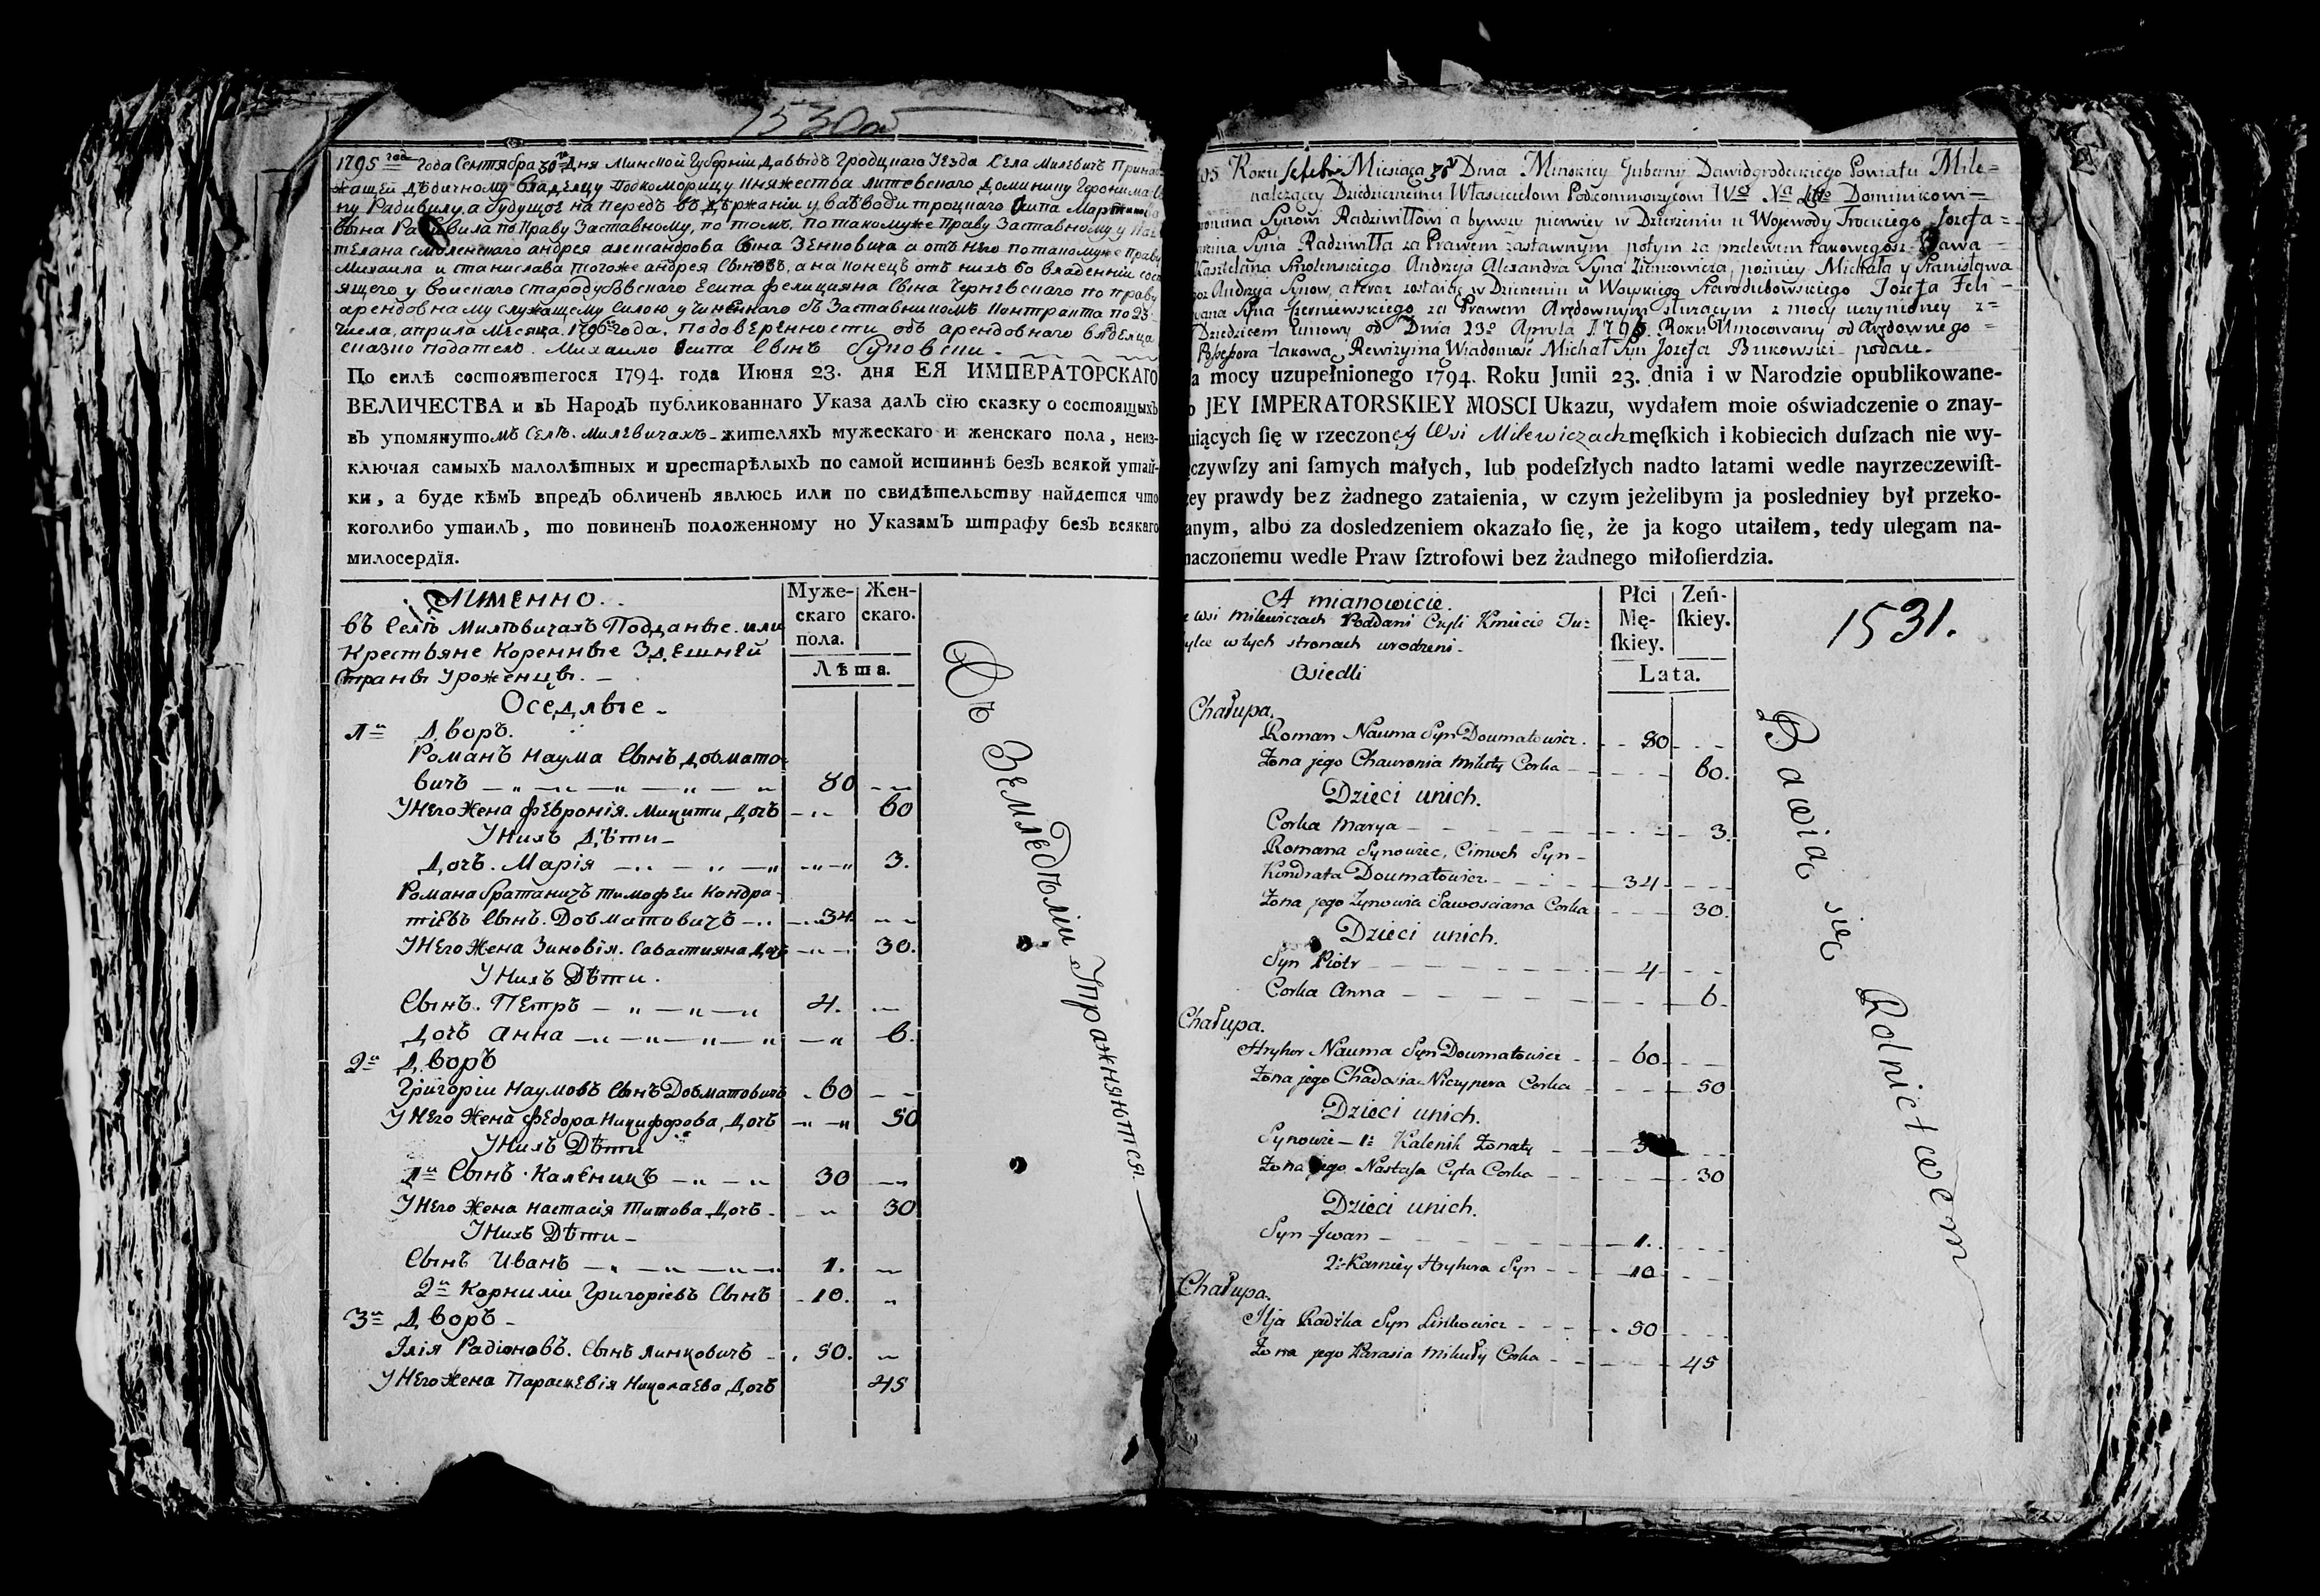 1530об
1795 года Сентября 30 Дня Минской Губерніи Давыдъ Гродцкаго Уезда Села Милевичъ Прина
жащей дѣдичному владелцу Подкоморицу Княжества литевскаго Доминику Героніма
ну Радивилу, а будущог на передъ въ дѣржаніи у ваѣводи троцкаго Осипа Мартинова
Сына Радивила по Праву Заставному, по томъ, по такомуже Праву Заставному у Каш
телана смоленскаго андрея александрова Сына Зенковича а отъ Него потакомуже Праву
Михаила и станислава тогоже андрея Сыновъ, а на конецъ отъ нихъ во владеніи сост
ящего у войскаго стародубовскаго Есипа фелицияна Сына Чернѣвскаго по праву
арендовному служащему Силою учиненнаго съ Заставникомъ Контракта по 23
числа, априла Месяца, 1795 года, по доверенности отъ арендовнаго владелца
сказко податель. Михаило Осипа Сынъ Буковски.
По силѣ состоявшегося 1794. года Июня 23. дня ЕЯ ИМПЕРАТОРСКАГО
ВЕЛИЧЕСТВА и въ Народъ публикованнаго Указа далъ сїю сказку о состоящыхъ
въ упомянутомъ Селѣ. Милевичахъ - жителяхъ мужескаго и женскаго пола, неиз-
ключая самыхъ малолѣтныхъ и престарѣлыхъ по самой истиннѣ безъ всякой утай-
ки, а буде кѣмъ впредъ обличенъ явлюсь или по свидѣтельству найдется что
коголибо утаилъ, то повиненъ положенному по Указамъ штрафу безъ всякаго
милосердїя.
Имѣнно.
въ Селѣ Милѣвичахъ Подданые. или
Крестьяне Коренные Здешней
Страны Уроженцы. -
Муже-
скаго
пола.
Жен-
скаго.
Лѣта.
Оседлые -
1й Дворъ.
Романъ Наума Сынъ довмато-
вичъ 80
У Него Жена февронія. Микити Дочъ 60
У Нихъ Дѣти -
Дочъ. Марія 3.
Романа братаничъ тимофѣи Кондра-
тіевъ Сынъ. Довматовичъ 34
У Него Жена Зиновія. Савастияна Дочъ 30.
У Нихъ Дѣти.
Сынъ. Петръ 4.
Дочъ анна 6.
2й Дворъ
Григоріи Наумовъ Сынъ Довматовичъ 60
У Него Жена федора Никифорова, Дочъ 50
У Нихъ Дѣти
1й Сынъ. Каленикъ 30
У Него Жена настасія Титова Дочъ 30
У Нихъ Дѣти -
Сынъ Иванъ 1.
2й Корниліи Григоріевъ Сынъ 10.
3й Дворъ -
Ілія Радіоновъ. Сынъ линковичъ 50.
У Него Жена Параскевія Николаева Дочъ 45
Въ Земледѣліи Упражняются.
95 Roku Septebra Miesiąca 30 Dnia Minskiey Guberny Dawidgrodeckiego Powiatu Mile=
należączy Dziedzicznemu Właścicielom Podkommorzycom Wgo Xa Litto Dominikowi
ronima Synowi Radziwiłłowi a bywszy pierwiey w Dzierżeniu u Wojewody Trockiego Jozefa =
rcina Syna Radziwiłła za Prawem zastawnym potym za przelewem takowegoż Prawa
Kasztelana Smolenskiego Andrzeja Alexandra Syna Zienkowicza, pozniey Michała y Stanisława
goż Andrzeja Synow, a teraz zostaiący w Dzierzeniu u Woyskiego Starodubowskiego Jozefa Feli
ciana Syna Czerniewskiego za Prawem Arędownym słuzącym z mocy uczynioney z=
Dziedzicem Umowy od Dnia 23o Apryla 1795. Roku Umocowany od Arędownego =
Possessora takową Rewizyiną Wiadomość Michał Syn Jozefa Bukowski podaie.
a mocy uzupełnionego 1794. Roku Junii 23. dnia i w Narodzie opublikowane-
o JEY IMPERATORSKIEY MOSCI Ukazu, wydałem moie oświadczenie o znay-
uiących ſię w rzeczoney Wsi Milewiczach męſkich i kobiecich duſzach nie wy-
czywſzy ani ſamych małych, lub podeſzłych nadto latami wedle nayrzeczewiſt-
zey prawdy bez żadnego zataienia, w czym jeżelibym ja posledniey był przeko-
anym, albo za dosledzeniem okazało ſię, że ja kogo utaiłem, tedy ulegam na-
naczonemu wedle Praw ſztrofowi bez żadnego miłoſierdzia.
A mianowicie.
e wsi Milewiczach Poddani Czyli Kmiecie Tu=
ylce w tych stronach urodzeni -
Osiedli
Płci
Mę-
ſkiey.
Zeń-
ſkiey.
Lata.
1531.
Chałupa.
Roman Nauma Syn Doumatowicz. 80
Żona jego Chauronia Mikity Corka 60.
Dzieci unich.
Corka Marya 3
Romana Synowiec, Cimoch Syn -
Kondrata Doumatowicz 34
Żona jego Zynowia Sawosciana Corka 30.
Dzieci unich.
Syn Piotr 4
Corka Anna 6
Chałupa.
Hryhor Nauma Syn Doumatowicz 60
Żona jego Chadosia Niczypera Corka 50
Dzieci unich.
Synowie - 1: Kalenik Żonaty
Żona jego Nastasja Cyta Corka 30
Dzieci unich.
Syn Iwan 1.
2: Karniey Hryhora Syn 10
Chałupa.
Ilja Radźka Syn Linkowicz 50
Żona jego Parasia Mikuły Corka 45
Bawią się Rolnictwem